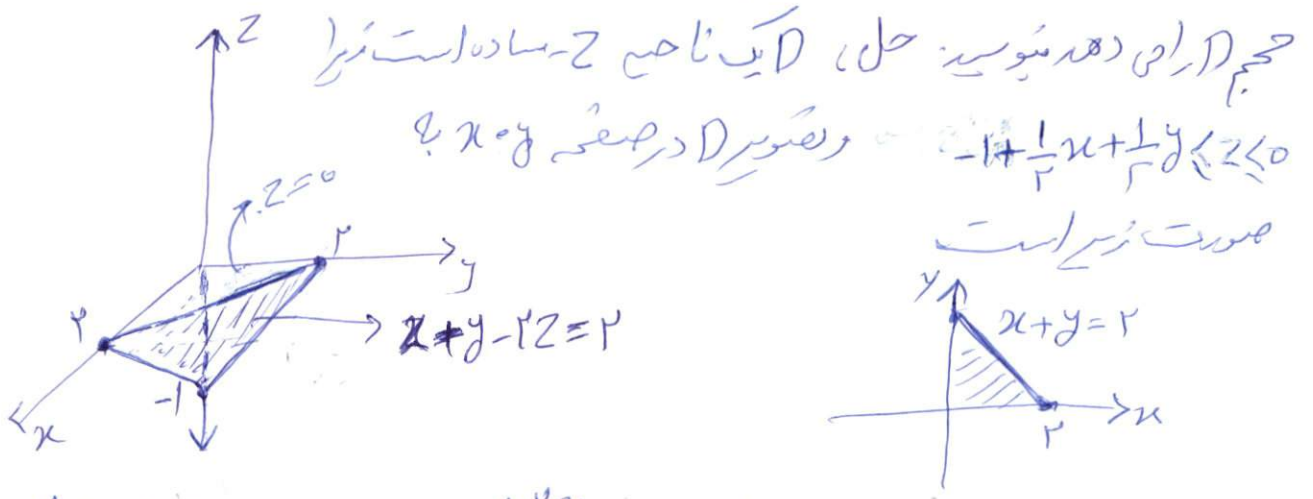 حجم D را می دهد بنویسید. حل، D یک ناحیه Z-ساده است زیرا
-۱+\frac{۱}{۲}x+\frac{۱}{۲}y≤z≤۰ و تصویر D در صفحه x.y به
صورت زیر است
z
z=۰
۲
y
۲
x+y-۲z=۲
-۱
x
y
x+y=۲
x
۲